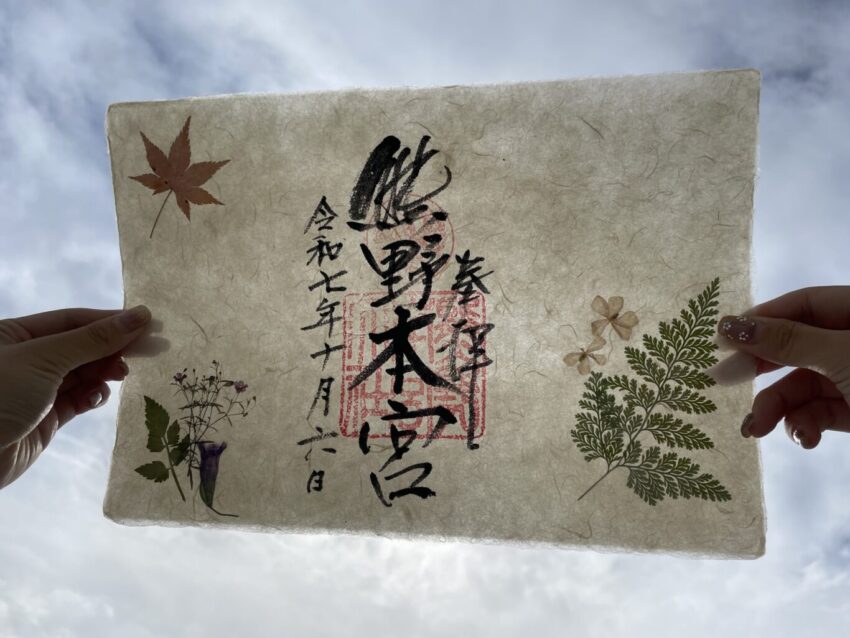 奉拝
熊野本宮
令和七年十月六日